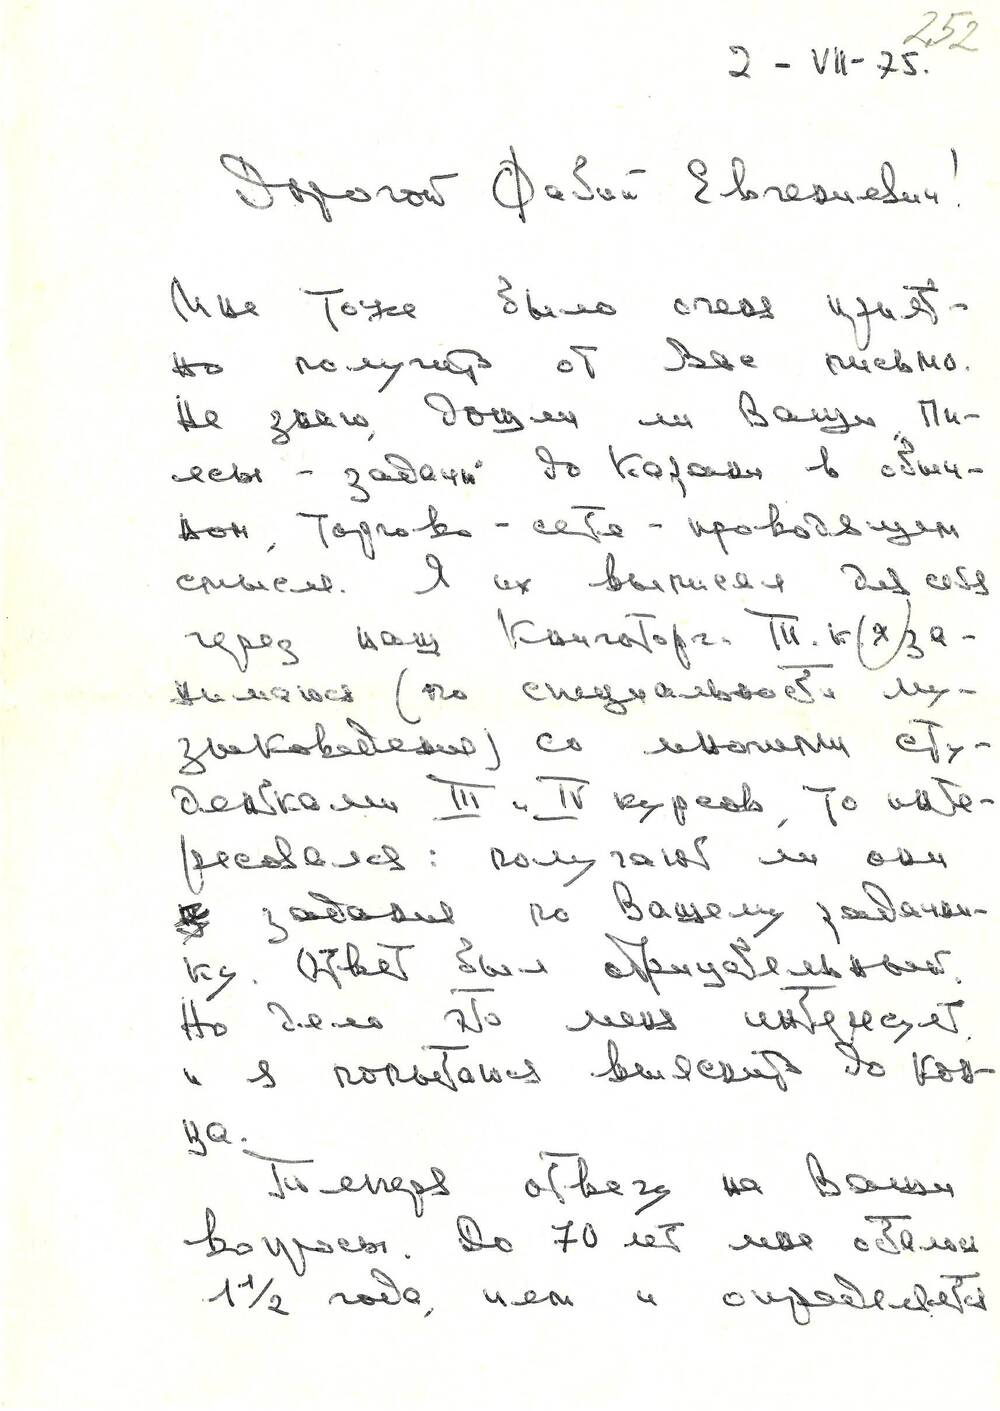 252
2 - VII - 75.
Дорогой Фабий Евгениевич!
Мне тоже было очень прият-
но получить от Вас письмо.
Не знаю, дошли ли Ваши „Пи-
есы - задачи" до Казани в обыч-
ном, торгово - сете - проводящем
смысле. Я их выписал для себя
через наш Книготорг. Т. к. (я) за-
нимаюсь (по специальности му-
зыковедения) со многими сту-
дентками III и IV курсов, то инте-
ресовался: получают ли они
задания по Вашему задачни-
ку. Ответ был отрицательный.
Но дело это меня интересует
и я попытаюсь выяснить до кон-
ца.
Теперь отвечу на Ваши
вопросы. До 70 лет мне остались
1 1/2 года, чем и определяется